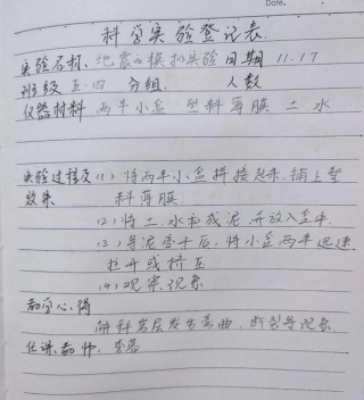 Date.
科学实验登记表
实验名称、地震的模拟实验 日期 11.17
班级 五.四 分组、 人数
仪器材料 两半小盒 塑料薄膜 土 水
实验过程及 (1) 将两半小盒拼接起来,铺上塑
效果 料薄膜
(2) 将土.水和成泥 并放入盒中.
(3) 等泥变干后,将小盒两半迅速
拉开或挤压
(4) 观察现象
教学心得
解释岩层发生弯曲,断裂等现象
任课教师、李